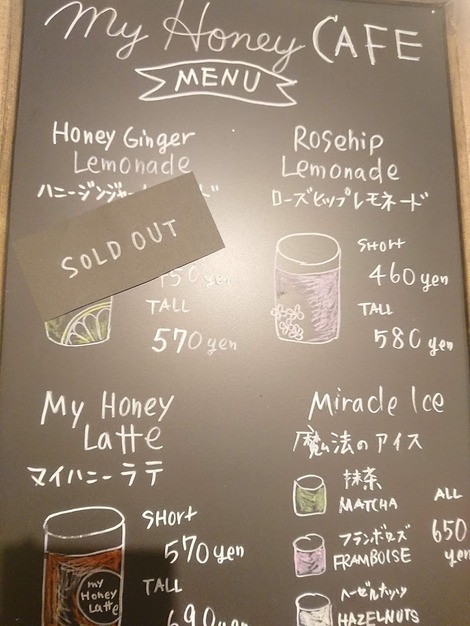 My Honey CAFE
MENU
Honey Ginger
Lemonade
SOLD OUT
TALL
570 yen
Rosehip
Lemonade
ローズヒップレモネード
SHORt
460 yen
TALL
580 yen
My Honey
Latte
マイハニーラテ
SHORt
570 yen
TALL
690 yen
my
Honey
Latte
Miracle Ice
魔法のアイス
抹茶
MATCHA
フランボワーズ
FRAMBOISE
ヘーゼルナッツ
HAZELNUTS
ALL
650
yen